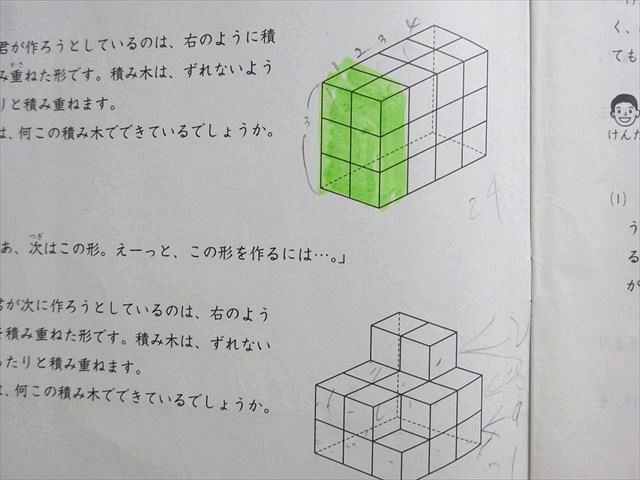 君が作ろうとしているのは、右のように積
み重ねた形です。積み木は、ずれないよう
りと積み重ねます。
は、何この積み木でできているでしょうか。
あ、次はこの形。えーっと、この形を作るには…。」
君が次に作ろうとしているのは、右のよう
を積み重ねた形です。積み木は、ずれない
ったりと積み重ねます。
は、何この積み木でできているでしょうか。
1 2 3 4
3
24
く、
ても
けんた
(1)
う
る
が